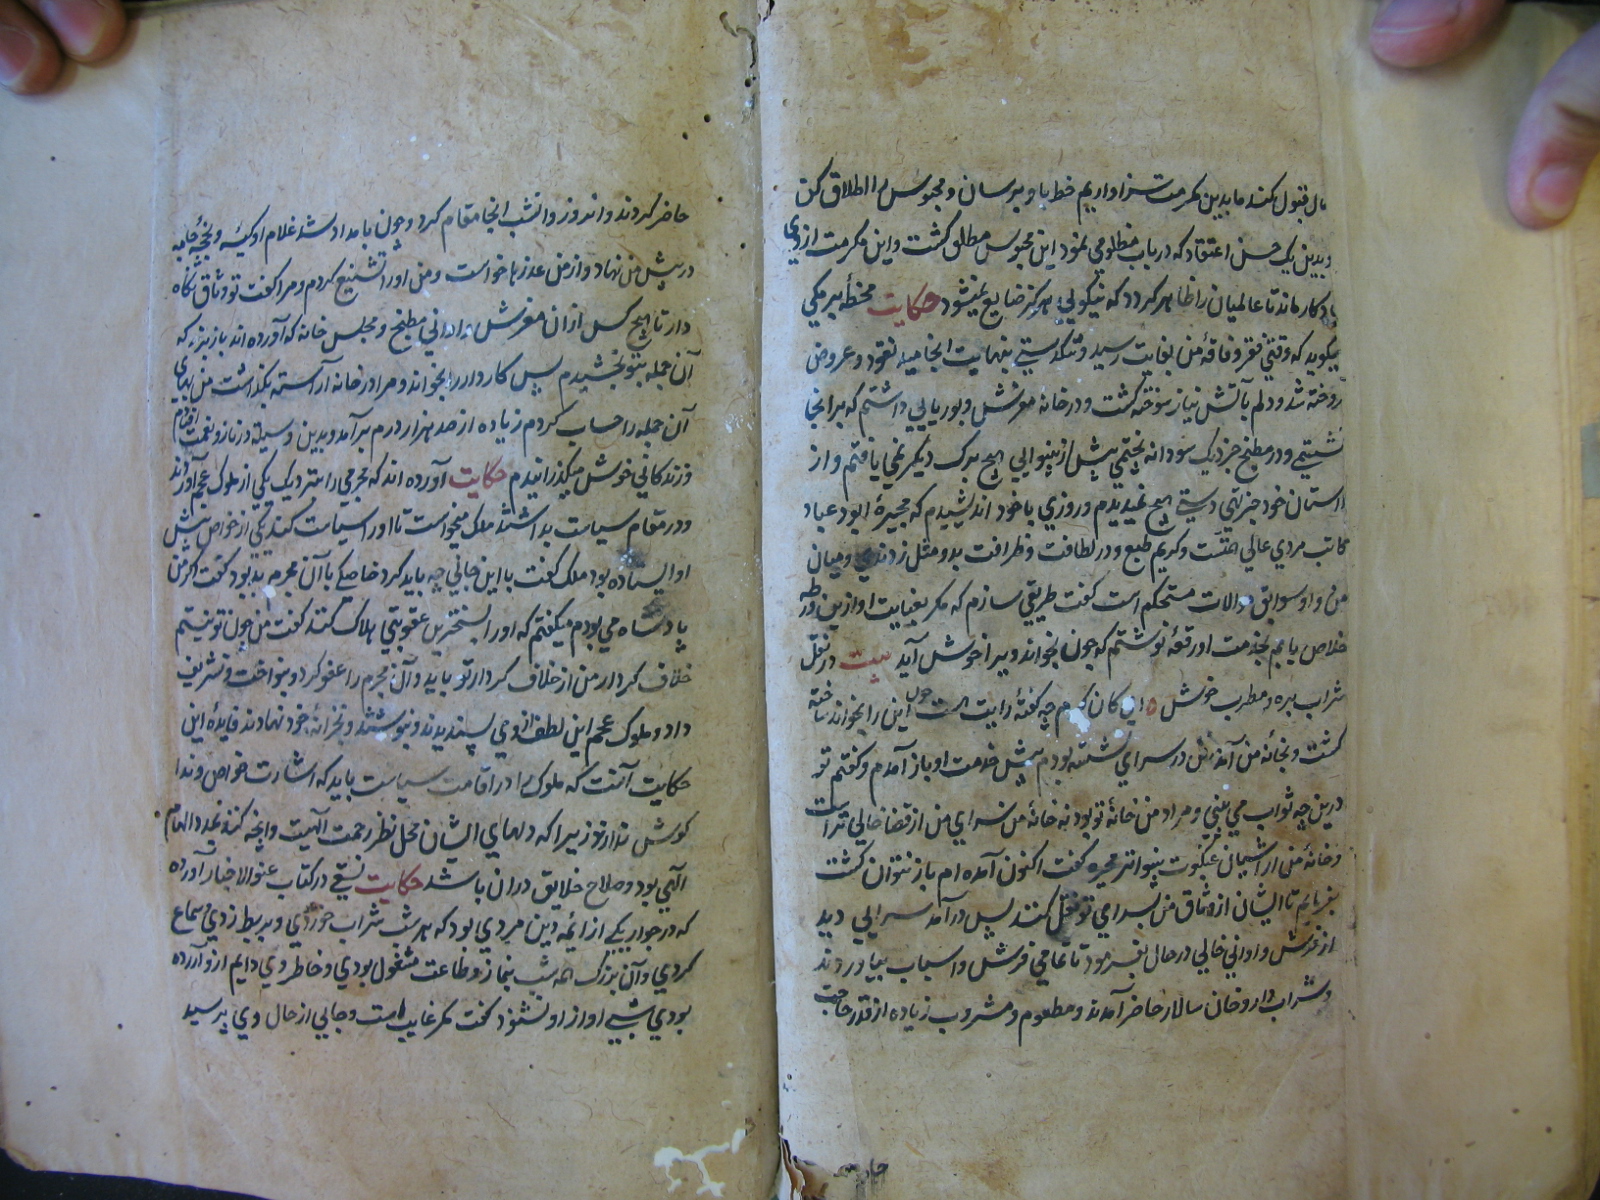 مال قبول نکند ما بدین مکرمت سزاواریم خط با و برسان و محبوس را اطلاق کن
و بدین یک حسن اعتقاد که در باب مظلومی نمود این محبوس مطلق کشت و این مکرمت از وی
یادکار ماند تا عالمیان را ظاهر کردد که نیکویی هرکز ضایع نمیشود حکایت محظهٔ برمکی
میکوید که وقتی فقر و فاقهٔ من بغایت رسید و تنکدستی بنهایت انجامید نقود و عروض
فروخته شد و دلم بآتش نیاز سوخته کشت و در خانه مفرش و بوریایی داشتم که بر انجا
نشستمی و در مطبخ جز دیک سودا نه پختمی پیش از بینوایی هیچ برک دیکر نمی یافتم و از
استان خود جز تهی دستی هیچ نمیدیدم و روزی با خود اندیشیدم که مجیرهٔ ابو د عباد
کاتب مردی عالی همتست و کریم طبع و در لطافت و ظرافت بدو مثل زدندی و میان
من و او سوابق موالات مستحکم است کفت طریقی سازم که مکر بعنایت او ازین ورطه
خلاص یابم بخدمت او رقعه نوشتم که چون بخواند ویرا خوش آید بیت در نقل
شراب بره و مطرب خوش ٥ این کان کرم چه کفتهٔ رایت است چون این را بخواند ساخته
کشت و بخانهٔ من آمد من در سرای نشسته بودم پیش خدمت او باز آمدم و کفتم تو
درین چه ثواب می بینی و مراد من خانهٔ تو بود نه خانهٔ من سرای من از قضا خالی تر است
و خانهٔ من از آشیان عنکبوت بینواتر مجیره کفت اکنون آمده ام باز نتوان کشت
بفرمایم تا ایشان از وثاق من بسرای تو نقل کنند پس در آمد سرایی دید
از فرش و اوانی خالی در حال بفرمود تا تمامی فرش و اسباب بیاوردند
و شراب دار و خان سالار حاضر آمدند و مطعوم و مشروب زیاده از قدر حاجت
حاضر کردند و اندروز و انشب انجا مقام کرد و چون بامداد شد غلام او کیسه و بخچهٔ جامه
در پیش من نهاد و از من عذرها خواست و من او را تشنیع کردم و مرا کفت تو وثاق نکاه
دار تا هیچ کس از ان مفرش و اوانی مطبخ و مجلس خانه که آورده اند باز نبرد که
آن جمله بتو بخشیدم پس کاردار را بخواند و مرا در خانه آراسته بکذاشت من بهای
آن جمله را حساب کردم زیاده از صد هزار درم بر آمد و بدین وسیلة در ناز و نعمت افتادم
و زندکانی خوش میکذرانیدم حکایت آورده اند که مجرمی را بنزدیک یکی از ملوک عجم آوردند
و در مقام سیاست بداشتند ملک میخواست تا او را سیاست کند یکی از خواص پیش
او ایستاده بود ملک کفت با این جانی چه باید کرد خاصکی با آن مجرم بد بود کفت اکر من
پادشاه می بودم میکفتم که او را بسختترین عقوبتی هلاک کنند کفت من چون تو نیستم
خلاف کردار من از خلاف کردار تو باید و آن مجرم را عفو کرد و بنواخت و تشریف
داد و ملوک عجم این لطف از وی پسندیدند و بنوشتند و بخزانهٔ خود نهادند فایدهٔ این
حکایت آنست که ملوک را در اقامت سیاست باید که اشارت خواص و ندا
کوش ندارند زیرا که دلهای ایشان محل نظر رحمت الهیست و انچه کنند بمدد الهام
الهی بود و صلاح خلایق دران باشد حکایت نسفی در کتاب عنوالاخبار آورده
که در جوار یکی از ائمهٔ دین مردی بود که هر شب شراب خوردی و بربط زدی و سماع
کردی و آن بزرک همه شب بنماز و طاعت مشغول بودی و خاطر وی دایم ازو آزرده
بودی شبی آواز او نشنود کفت مکر غایب است و جایی از حال وی پرسید